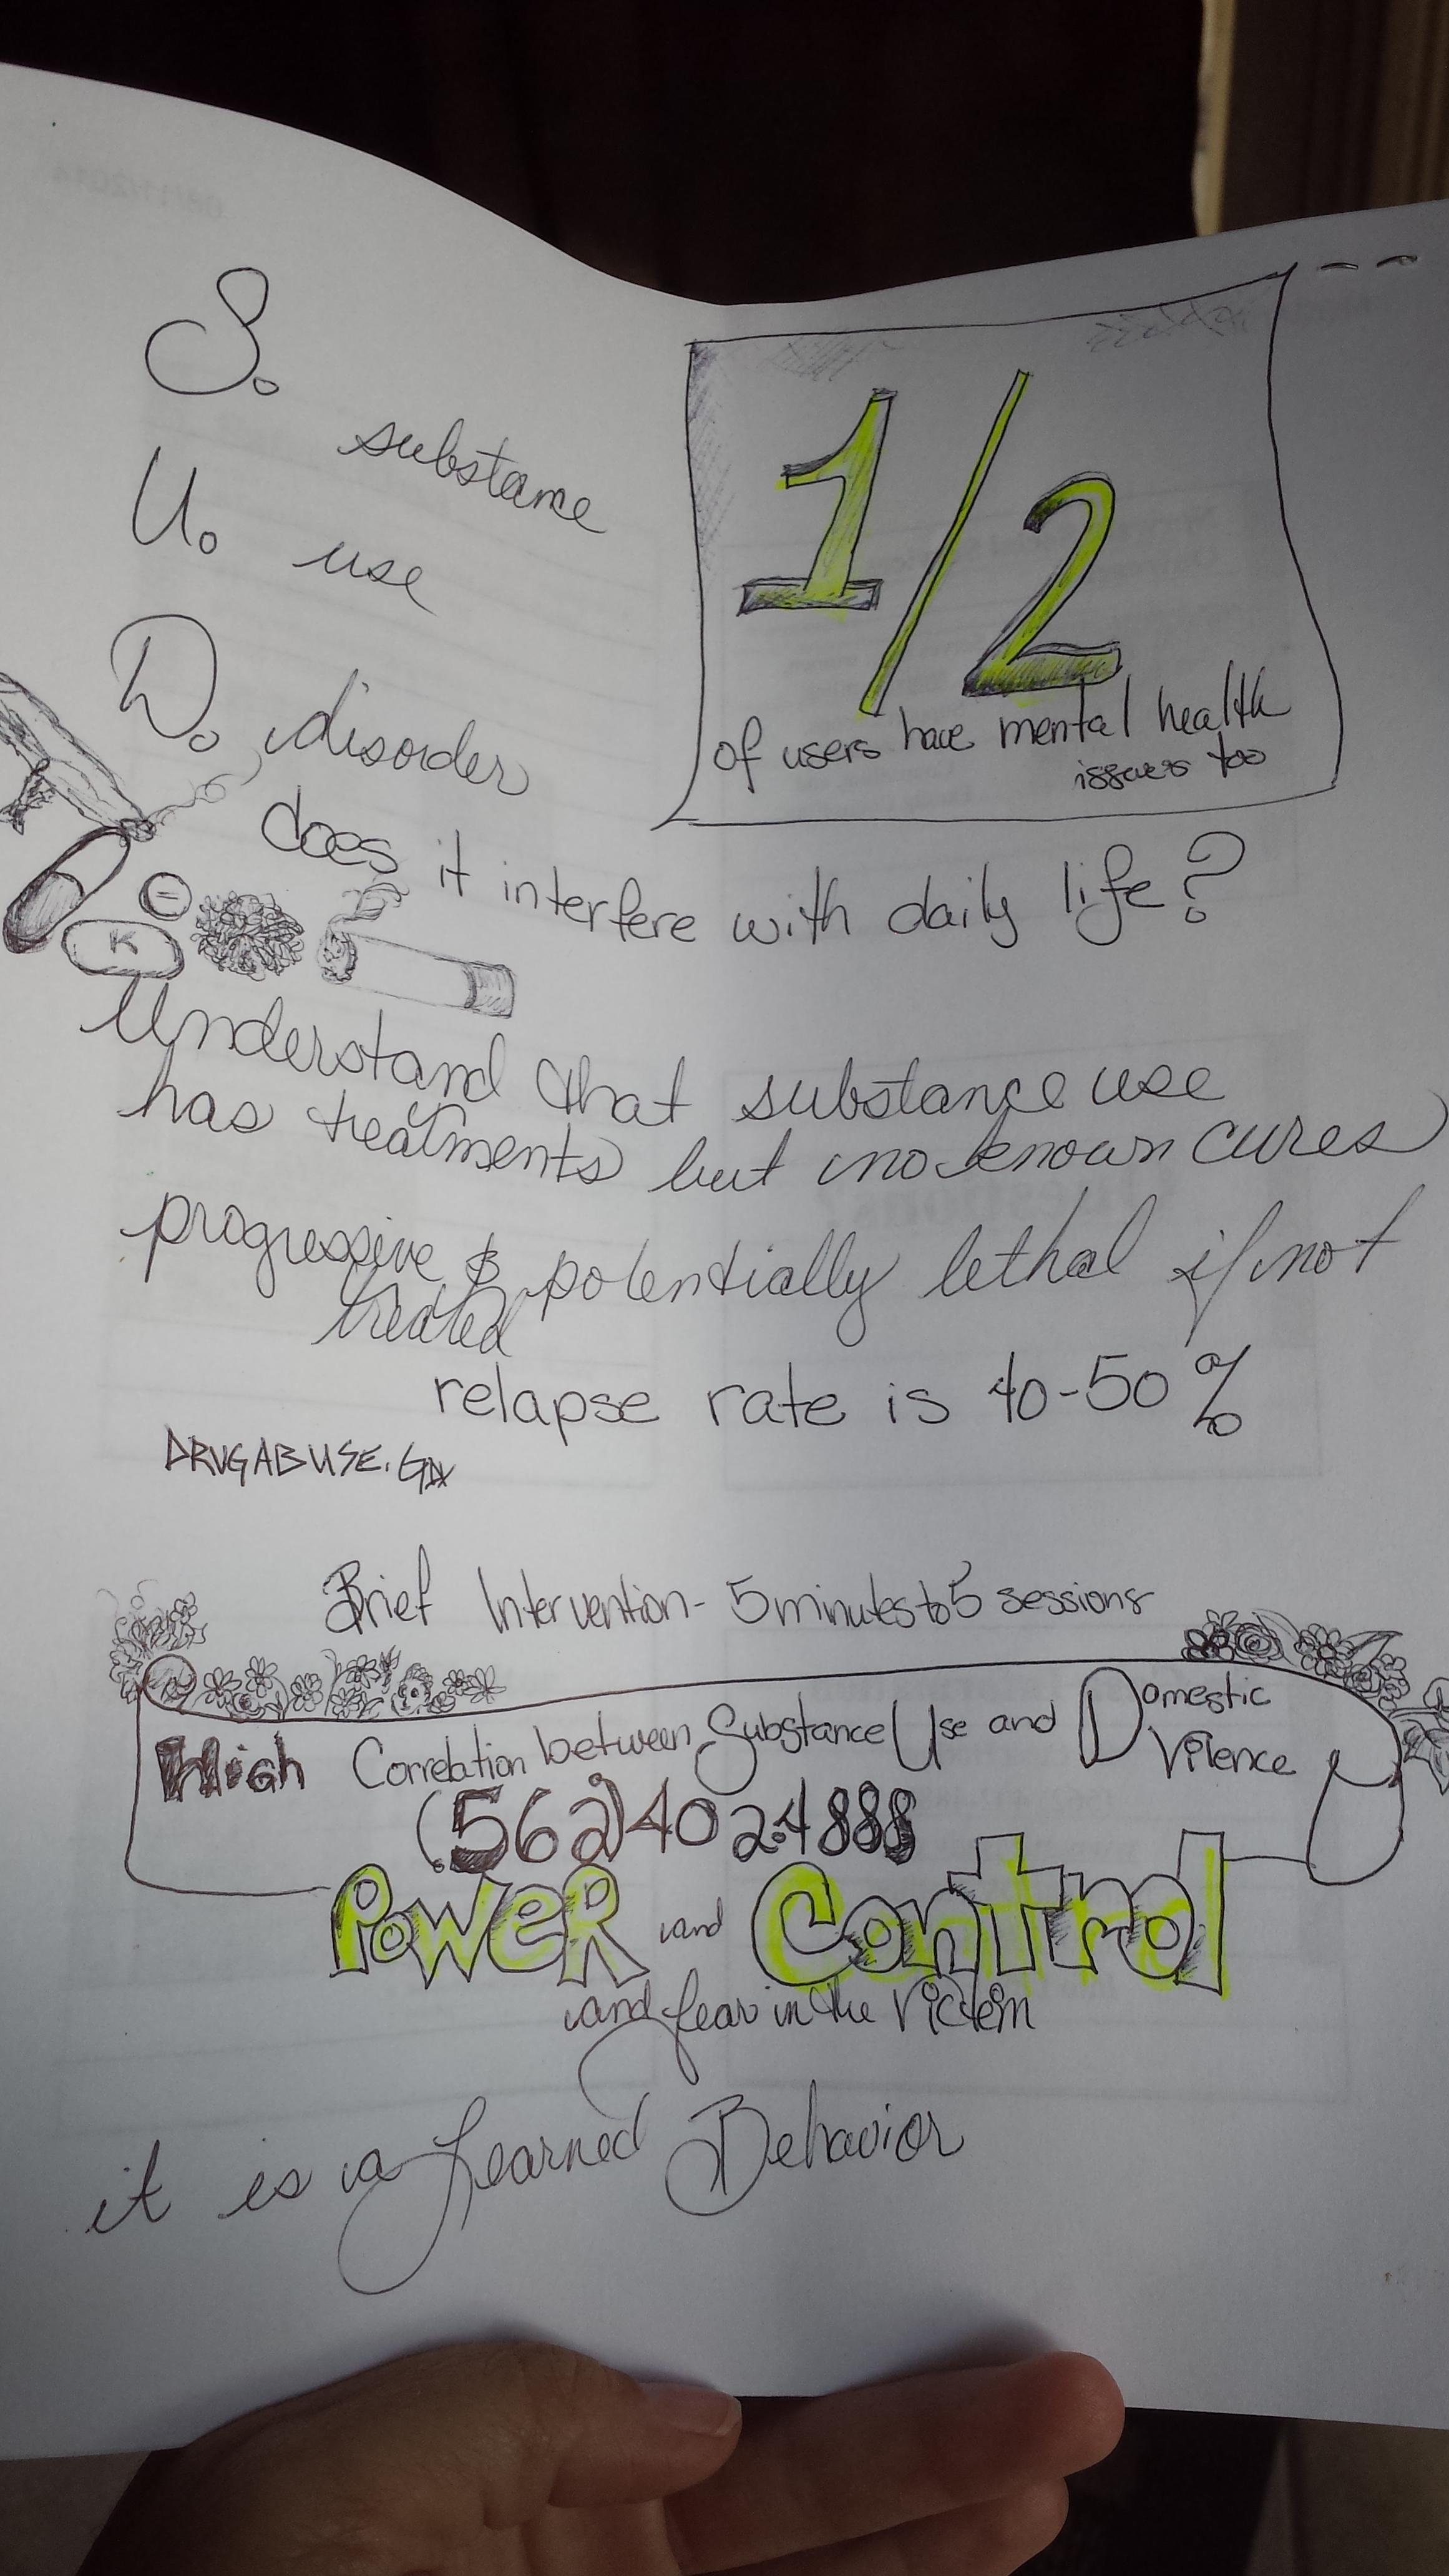 S.
substance
U.
use
D.
disorder
1/2
of users have mental health
issues too
does it interfere with daily life?
K
Understand that substance use
has treatments but no known cures
progressive & potentially lethal if not
treated
relapse rate is 40-50%
DRUGABUSE.
Brief Intervention - 5 minutes to 5 sessions
High Correlation between Substance Use and Domestic
Vilence
(562) 402.4888
Power and Control
and fear in the Victim
it is a Learned Behavior